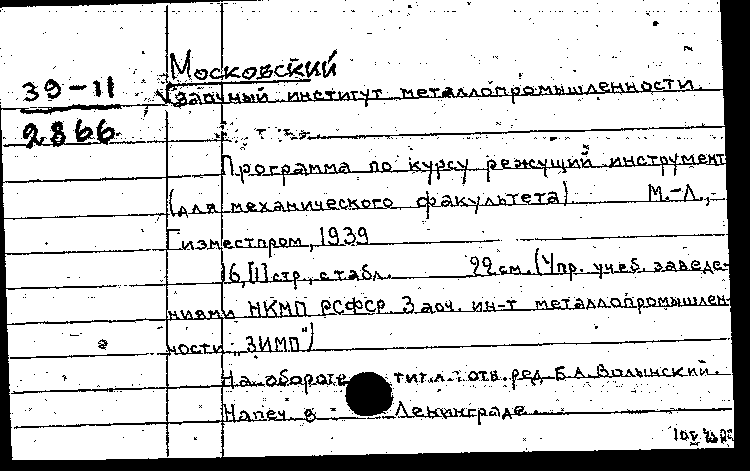 Московский
39-11
заочный институт металлопромышленности.
2866
Программа по курсу режущий инструмент
(для механического факультета) М.-Л.,
Гизместпром, 1939
16,[1] стр., с табл. 22 см. (Упр. учеб. заведе-
ниями НКМП РСФСР Заоч. ин-т металлопромышлен-
ности "ЗИМП")
На обороте тит. л.: отв. ред. Б.А. Волынский.
Напеч. в Ленинграде.